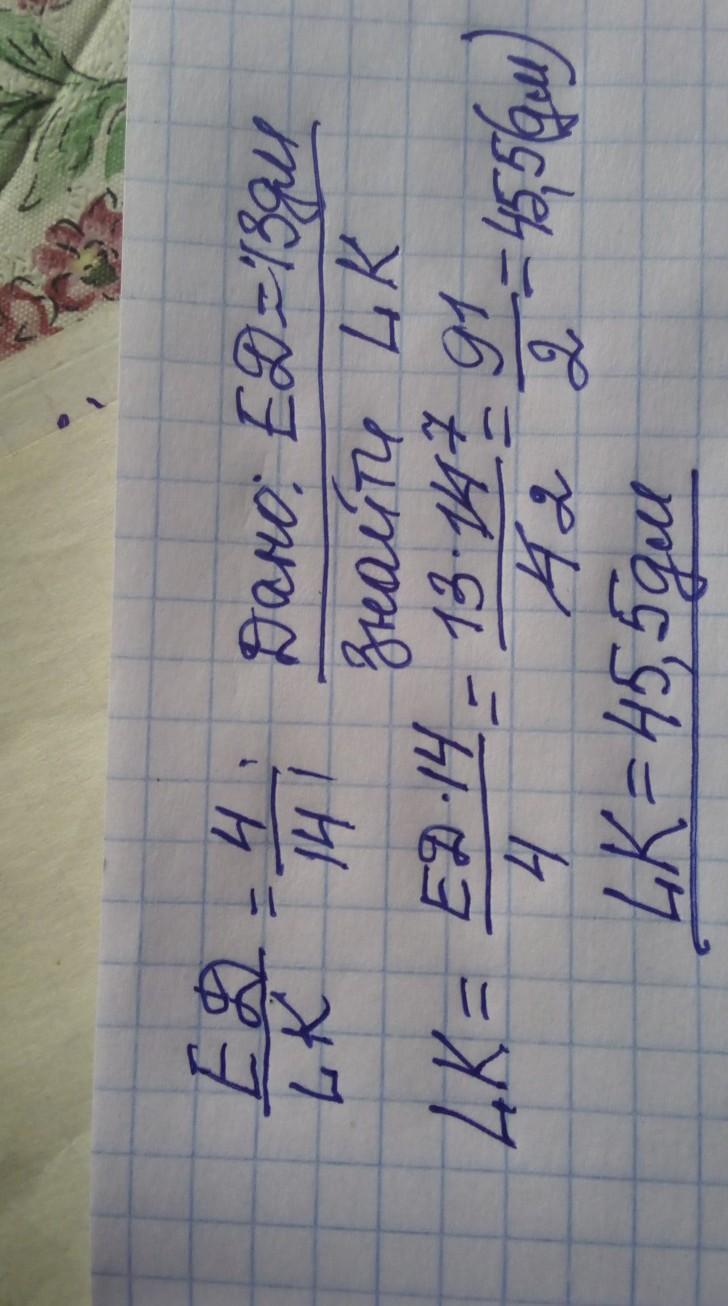 ЕД/LK = 4/14; Дано: ЕД = 13дм
Знайти LK
LK = ЕД·14/4 = 13·14 7/4 2 = 91/2 = 45,5(дм)
LK = 45,5дм